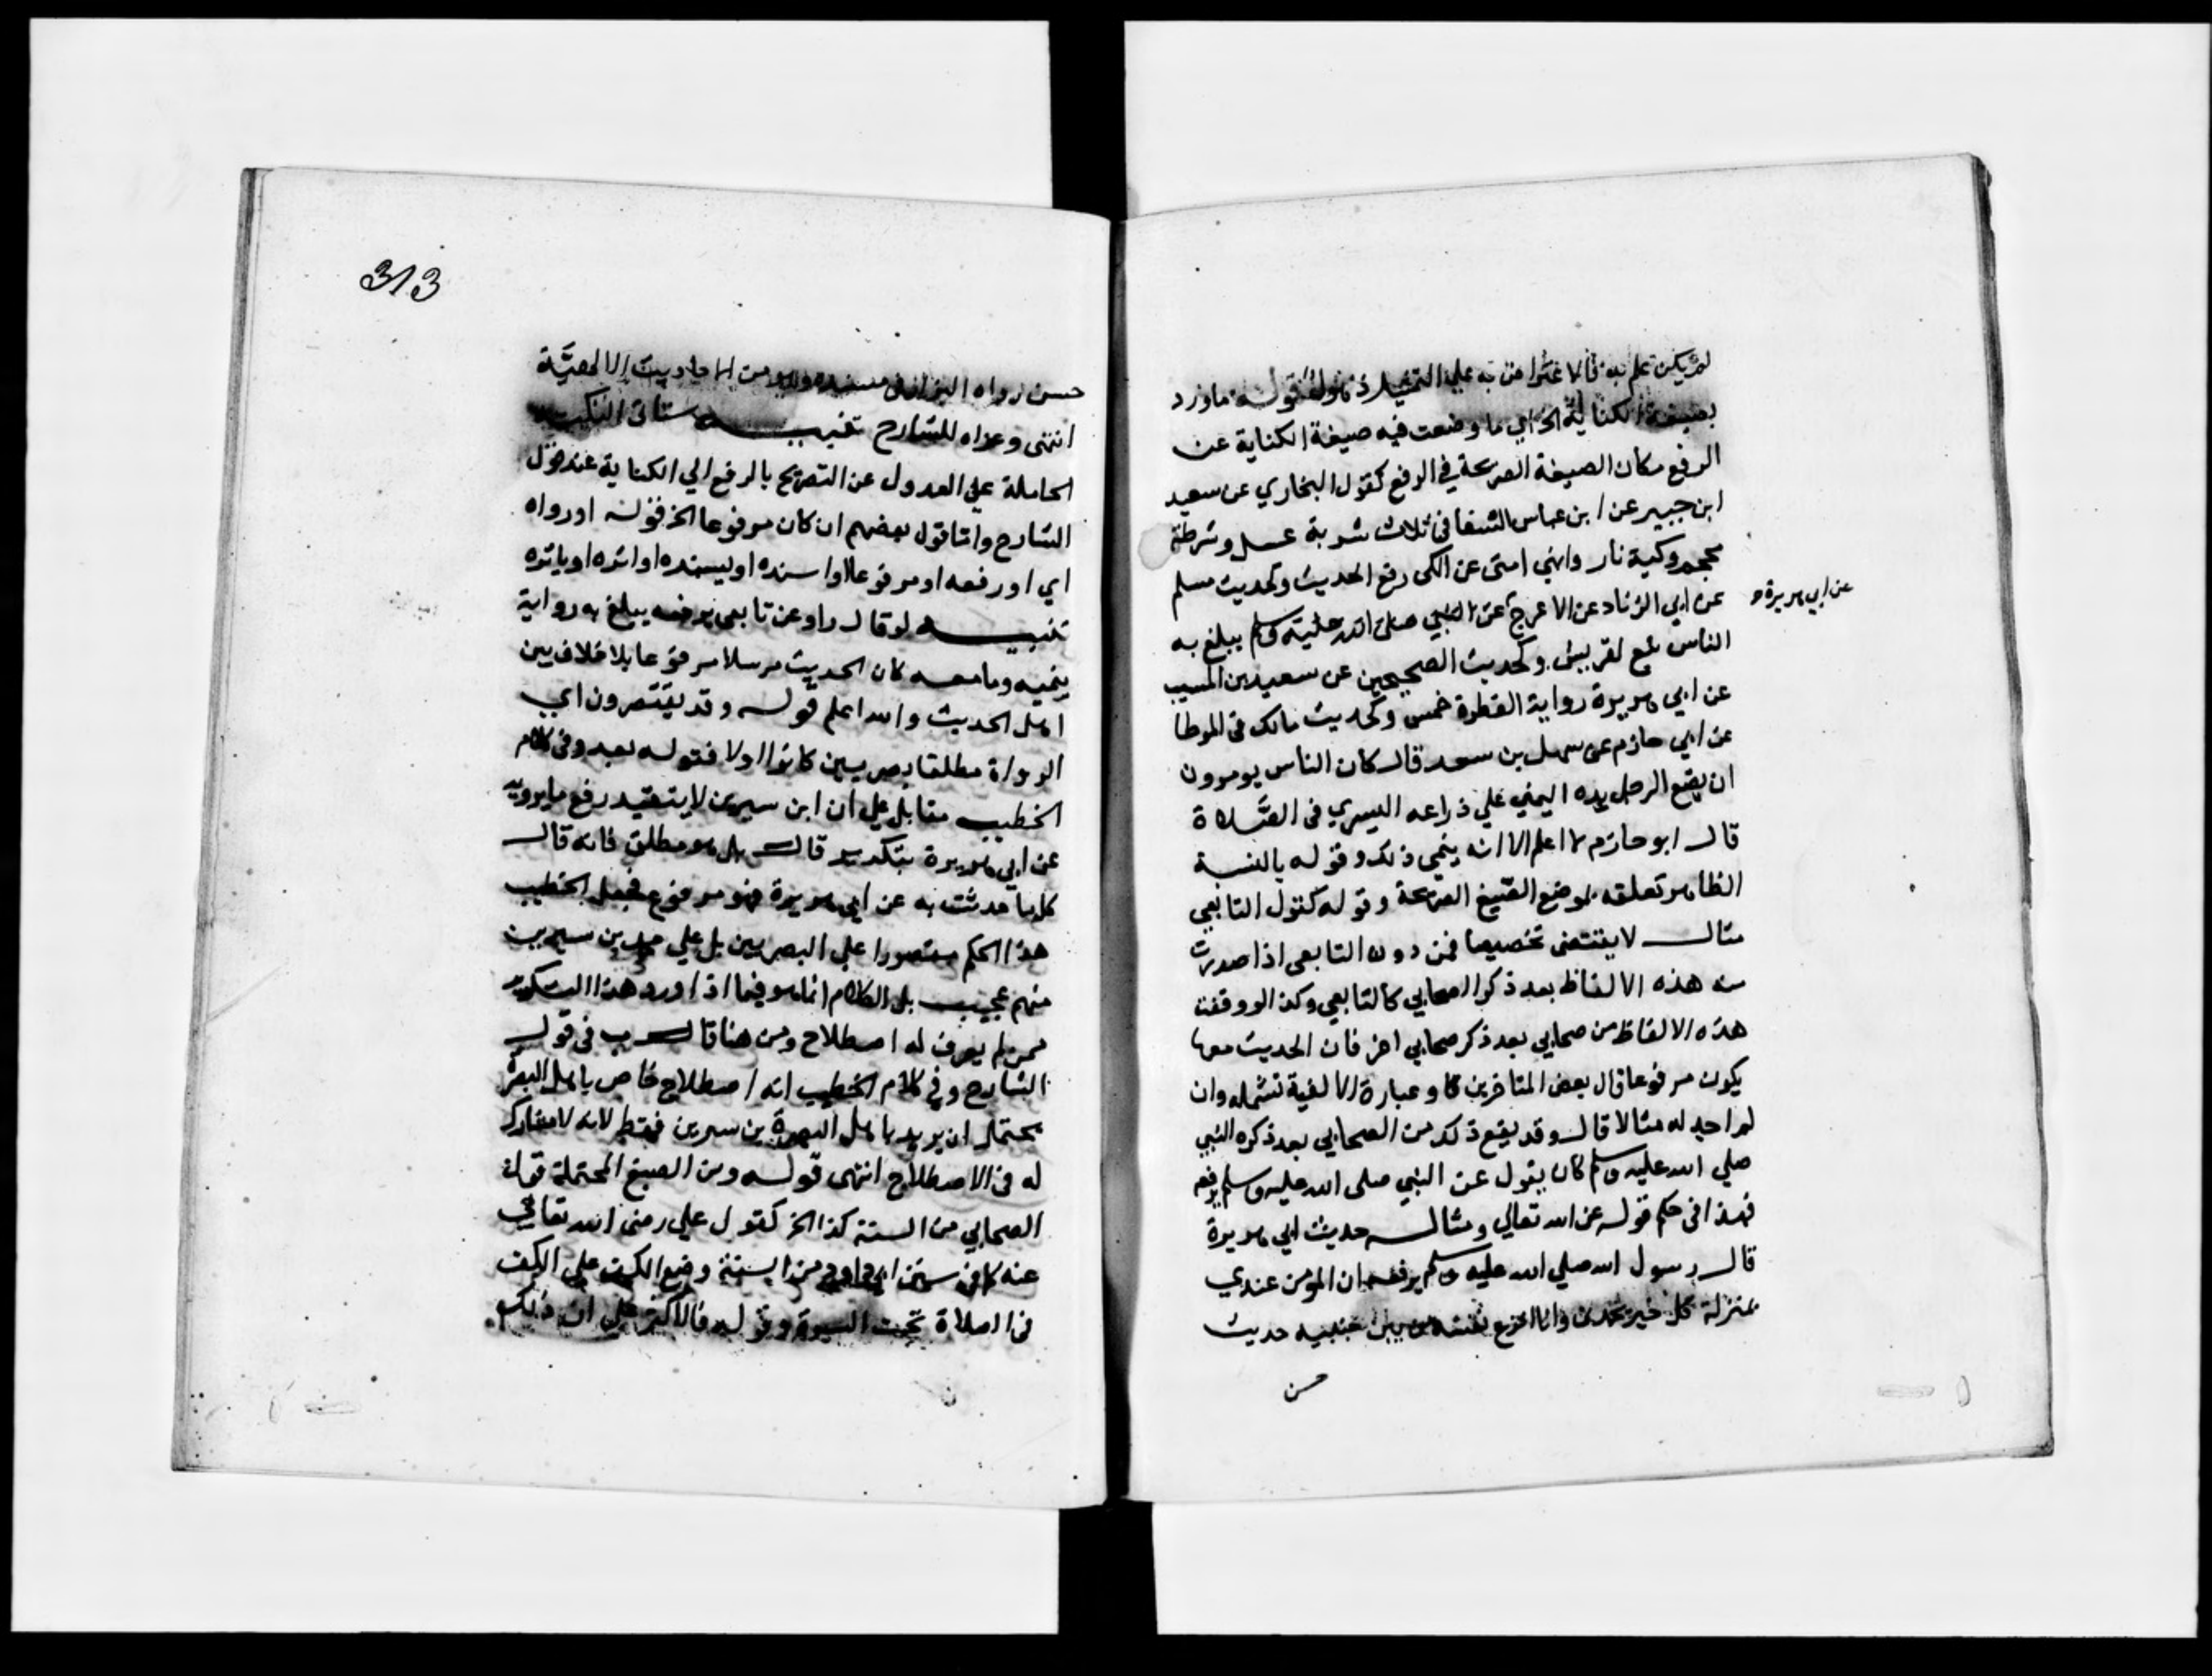 لم يكن علم به قوله ما ورد
بصيغة الكناية الخ اي ما وضعت فيه صيغة الكناية عن
الرفع مكان الصيغة الصريحة في الرفع كقول البخاري عن سعيد
ابن جبير عن ابن عباس الشفا في ثلاث شربة عسل وشرطة
محجم وكية نار وانهي امتي عن الكي رفع الحديث وكحديث مسلم
عن ابي الزناد عن الاعرج عن النبي صلى الله عليه وسلم يبلغ به
عن ابي هريرة
الناس تبع لقريش وكحديث الصحيحين عن سعيد بن المسيب
عن ابي هريرة رواية الفطرة خمس وكحديث مالك في الموطا
عن ابي حازم عن سهل بن سعد قال كان الناس يومرون
ان يضع الرجل يده اليمني علي ذراعه اليسري في الصلاة
قال ابو حازم لا اعلم الا انه ينمي ذلك وقوله بالنسبة
الظاهر تعلقه بموضع الصيغ الصريحة وقوله كقول التابعي
مثال لا يقتضي تخصيصا فمن دون التابعي اذا صدرت
منه هذه الالفاظ بعد ذكر الصحابي كالتابعي وكذا لو وقفت
هذه الالفاظ من صحابي بعد ذكر صحابي اخر فان الحديث معها
يكون مرفوعا قال بعض المتاخرين كا وعبارة الالفية تشمله وان
لم اجد له مثالا قال وقد يقع ذلك من الصحابي بعد ذكره النبي
صلي الله عليه وسلم كان يقول عن النبي صلى الله عليه وسلم يرفعه
فهذا في حكم قوله عن الله تعالي ومثاله حديث ابي هريرة
قال رسول الله صلي الله عليه وسلم يرفعه ان المؤمن عندي
بمنزلة كل خير يحمدني وانا انزع نفسه من بين جنبيه حديث
حسن
313
حسن رواه البزار في مسنده وهو من الاحاديث الالهية
انتهى وعزاه للشارح تنبيه ستاتي النكت
الحاملة علي العدول عن التصريح بالرفع الي الكناية عند قول
الشارح واما قول بعضهم ان كان مرفوعا الخ فقوله او رواه
اي او رفعه او مرفوعا او اسنده او يسنده او اثره او ياثره
تنبيه لو قال راو عن تابعي يرفعه يبلغ به رواية
ينميه وما معه كان الحديث مرسلا مرفوعا بلا خلاف بين
اهل الحديث والله اعلم قوله وقد يقتصرون اي
الرواة مطلقا بصريين كانوا اولا فقوله بعد وفي كلام
الخطيب مقابل علي ان ابن سيرين لا يتقيد رفع ما يرويه
عن ابي هريرة بتكرير قال بل هو مطلق فانه قال
كلما حدثت به عن ابي هريرة فهو مرفوع فجعل الخطيب
هذا الحكم مقصورا علي البصريين بل علي محمد بن سيرين
منهم عجيب بل الكلام انما هو فيما اذا ورد هذا التكرير
ممن لم يعرف له اصطلاح ومن هنا قال ب في قول
الشارح وفي كلام الخطيب انه اصطلاح خاص باهل البصرة
يحتمل ان يريد باهل البصرة بن سيرين فقط لانه لا مشارك
له في الاصطلاح انتهى قوله ومن الصيغ المحتملة قول
الصحابي من السنة كذا الخ كقول علي رضى الله تعالي
عنه كما في سنن ابي داود من السنة وضع الكف علي الكف
في الصلاة تحت السرة وقوله فالاكثر علي ان ذلك